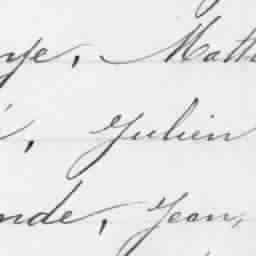 ye, Matt
, Julien
nde, Jean,